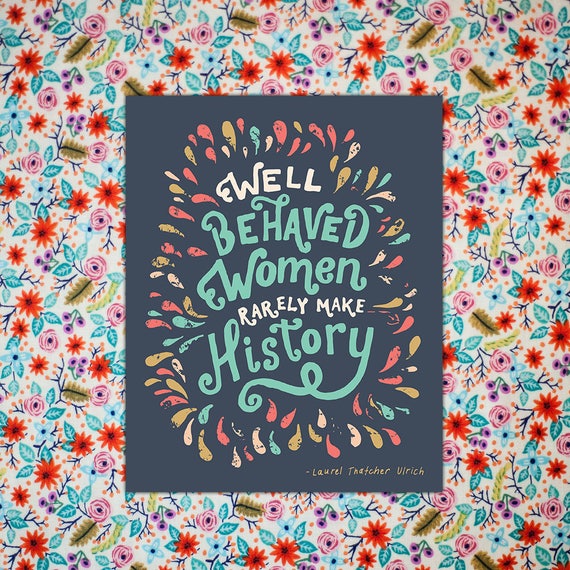 WELL
BEHAVED
WOMEN
RARELY MAKE
History
- Laurel Thatcher Ulrich